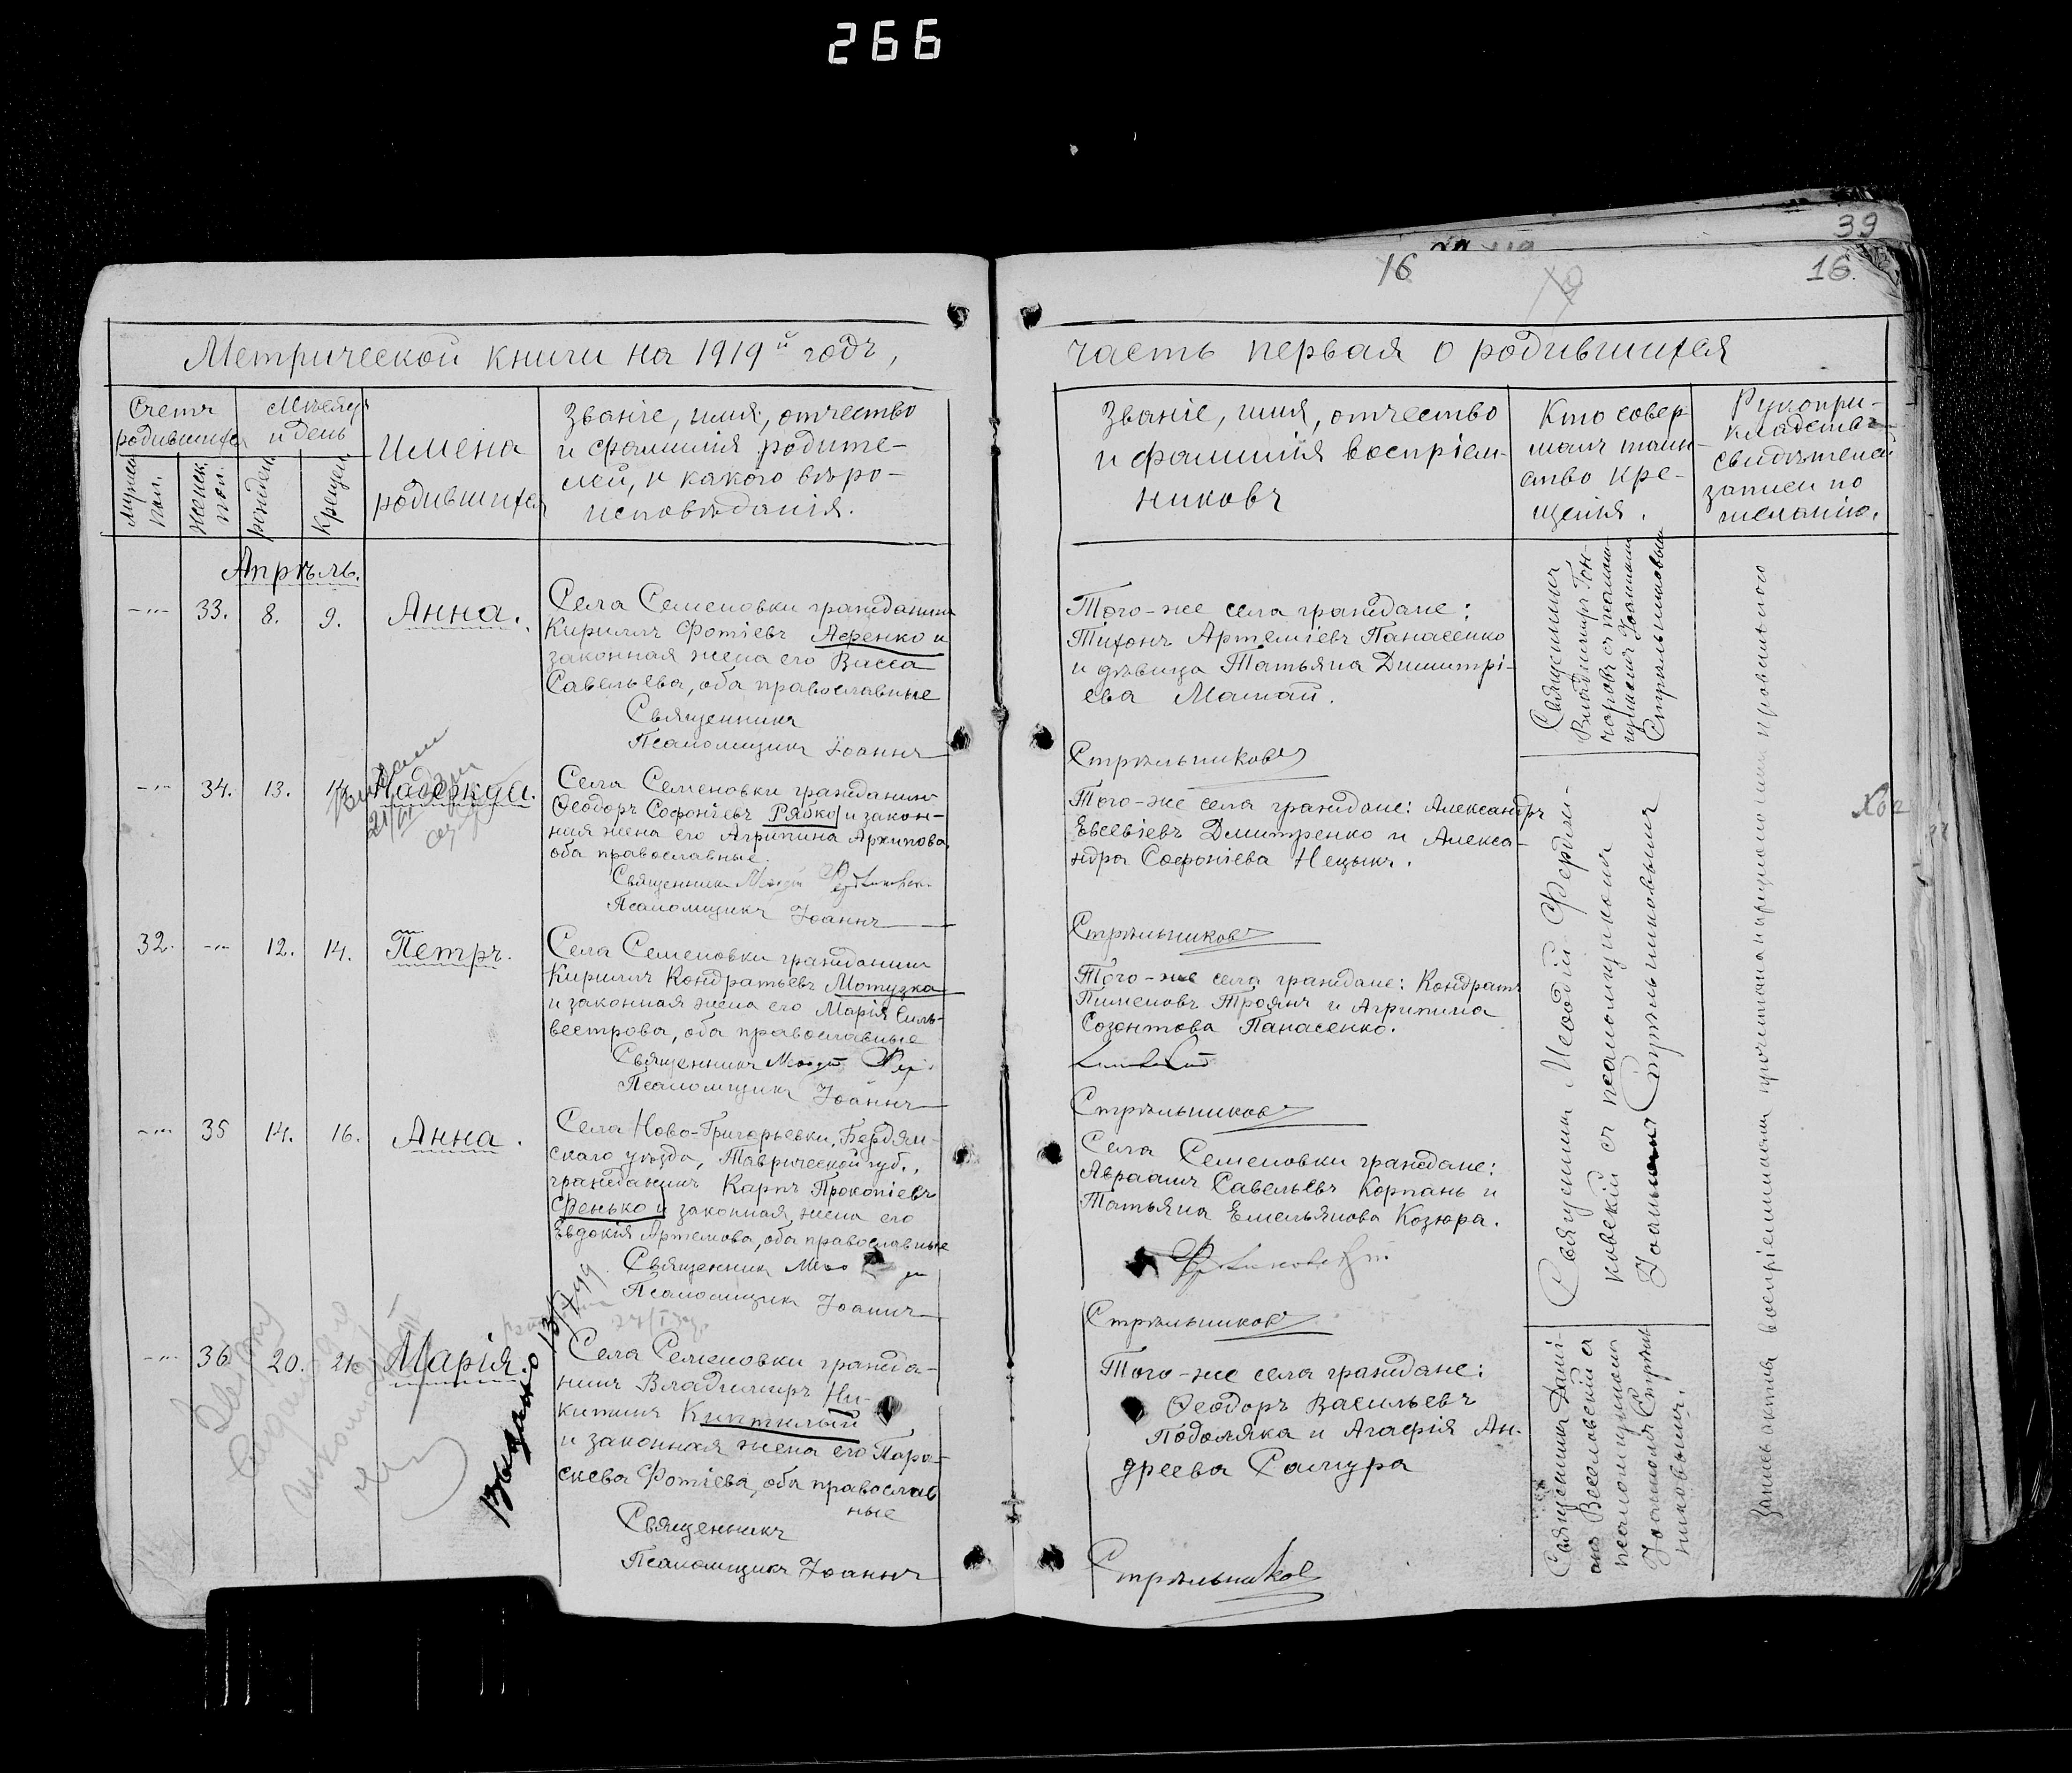 266
39
16
16.
Метрической книги на 1919й годъ,
часть первая о родившихся
Счетъ
родившихся
Мужеск.
пол.
Женск.
пол.
Месяцъ
и день
рожден.
Крещен.
Имена
родившихся
Званіе, имя, отчество
и фамилія родите-
лей, и какого вѣро-
исповѣданія.
Званіе, имя, отчество
и фамилія воспріем-
никовъ
Кто совер-
шалъ таин-
ство кре-
щенія.
Рукопри-
кладство
свидѣтелей
записи по
желанію.
Апрѣль.
33. 8. 9. Анна.
Села Семеновки гражданинъ
Кириллъ Фотіевъ и
законная жена его Васса
Савельева, оба православные
Священникъ
Псаломщикъ Іоаннъ
Того-же села граждане:
Тихонъ Артеміевъ Панасенко
и дѣвица Татьяна Димитрі-
ева Мамай.
Стрѣльниковъ
Священникъ
Владимиръ Гон-
чаровъ съ псалом-
щикомъ Іоанномъ
Стрѣльниковымъ
34. 13. 14. Надежда.
Села Семеновки гражданинъ
Ѳеодоръ Софоніевъ Рябко и закон-
ная жена его Агрипина Архипова,
оба православные.
Священникъ
Псаломщикъ Іоаннъ
Того-же села граждане: Александръ
Евсевіевъ Дмитренко и Алекса-
ндра Софоніева Нецыкъ.
Стрѣльниковъ
32. 12. 14. Петръ.
Села Семеновки гражданинъ
Кириллъ Кондратьевъ Мотузка
и законная жена его Марія Силь-
вестрова, оба православные
Священникъ
Псаломщикъ Іоаннъ
Того-же села граждане: Кондратъ
Пименовъ Троянъ и Агрипина
Созонтова Панасенко.
Стрѣльниковъ
35 14. 16. Анна.
Села Ново-Григорьевки, Бердян-
скаго уѣзда, Таврической губ.,
гражданинъ Карпъ Прокопіевъ
Фенько и законная жена его
Евдокія Артемова, оба православные
Священникъ
Псаломщикъ Іоаннъ
Села Семеновки граждане:
Авраамъ Савельевъ Корпань и
Татьяна Емельянова Козюра.
Стрѣльниковъ
Священникъ Меѳодій
съ псаломщикомъ
Іоанномъ Стрѣльниковымъ
36 20. 21. Марія.
Села Семеновки гражда-
нинъ Владимиръ Ни-
китинъ
и законная жена его Пара-
скева Фотіева, оба православ
ные
Священникъ
Псаломщикъ Іоаннъ
Того-же села граждане:
Ѳеодоръ Васильевъ
Подоляка и Агафія Ан-
дреева Рашура
Стрѣльниковъ
Священникъ Даміанъ
Веселовскій съ
псаломщикомъ
Іоанномъ Стрѣль
никовымъ.